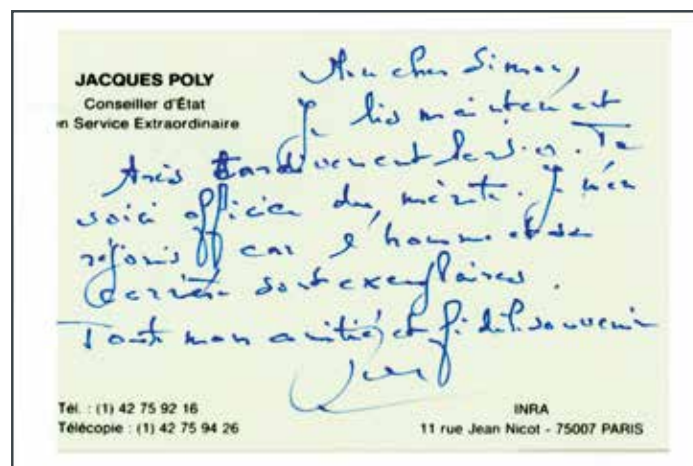 JACQUES POLY
Conseiller d'État
en Service Extraordinaire
Mon cher Simon,
Je lis maintenant
très tardivement Te
voici officier du mérite. Je m'en
réjouis car l'homme et sa
carrière sont exemplaires.
Toute mon amitié et fidèle souvenir
Tél. : (1) 42 75 92 16
Télécopie : (1) 42 75 94 26
INRA
11 rue Jean Nicot - 75007 PARIS